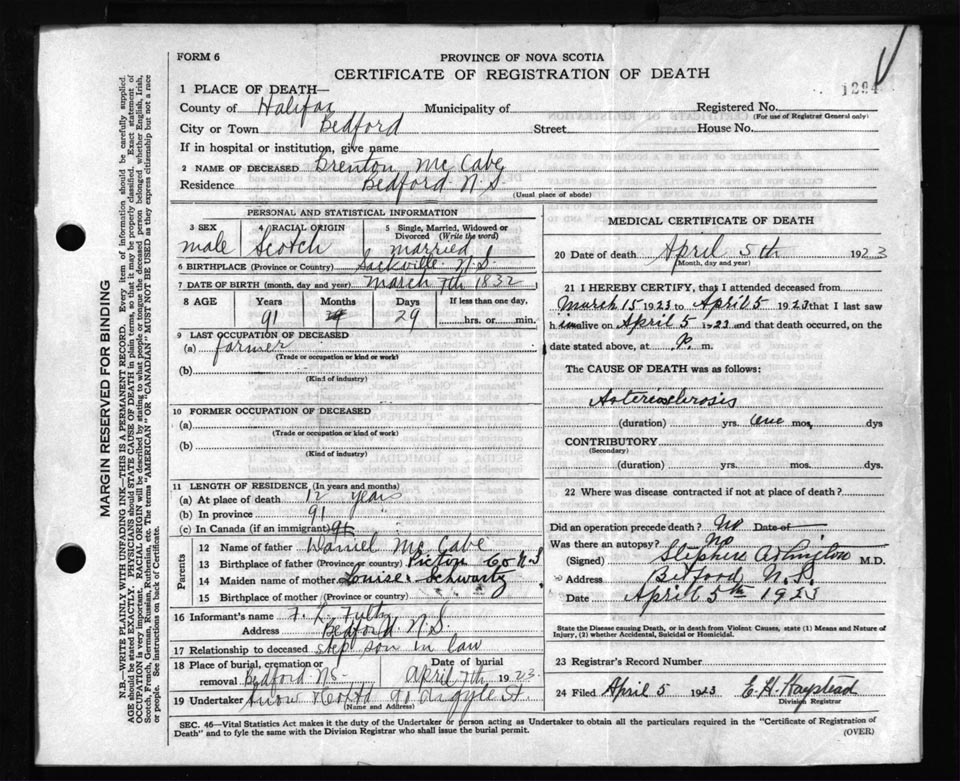 FORM 6
PROVINCE OF NOVA SCOTIA
CERTIFICATE OF REGISTRATION OF DEATH
1294
1 PLACE OF DEATH—
County of Halifax Municipality of Registered No.
(For use of Registrar General only)
City or Town Bedford Street House No.
If in hospital or institution, give name
2 NAME OF DECEASED Brenton McCabe
Residence Bedford N.S.
(Usual place of abode)
PERSONAL AND STATISTICAL INFORMATION
3 SEX 4 RACIAL ORIGIN 5 Single, Married, Widowed or Divorced (Write the word)
male Scotch married
6 BIRTHPLACE (Province or Country) Sackville N.S.
7 DATE OF BIRTH (month, day and year) March 7th 1832
8 AGE Years Months Days If less than one day,
91 29 hrs. or min.
9 LAST OCCUPATION OF DECEASED
(a) farmer
(Trade or occupation or kind of work)
(b)
(Kind of industry)
10 FORMER OCCUPATION OF DECEASED
(a)
(Trade or occupation or kind of work)
(b)
(Kind of industry)
11 LENGTH OF RESIDENCE (In years and months)
(a) At place of death 12 years
(b) In province 91 "
(c) In Canada (if an immigrant) 91
Parents
12 Name of father Daniel McCabe
13 Birthplace of father (Province or country) Pictou Co N.S
14 Maiden name of mother Louise Schwartz
15 Birthplace of mother (Province or country)
16 Informant's name F. L. Fultz
Address Bedford. N.S.
17 Relationship to deceased step son in law
18 Place of burial, cremation or removal Bedford NS Date of burial April 7th 1923
19 Undertaker Snow & Co Ltd 90 Argyle St.
(Name and Address)
MEDICAL CERTIFICATE OF DEATH
20 Date of death April 5th 1923
(Month, day and year)
21 I HEREBY CERTIFY, that I attended deceased from
March 15 1923 to April 5 1923 that I last saw
him alive on April 5 1923 and that death occurred, on the
date stated above, at P. m.
The CAUSE OF DEATH was as follows:
Arteriosclerosis
(duration) yrs. One mos. dys
CONTRIBUTORY
(Secondary)
(duration) yrs. mos. dys.
22 Where was disease contracted if not at place of death?
Did an operation precede death? No Date of
Was there an autopsy? No
(Signed) Stephen M.D.
Address Bedford N.S.
Date April 5th 1923
State the Disease causing Death, or in death from Violent Causes, state (1) Means and Nature of
Injury, (2) whether Accidental, Suicidal or Homicidal.
23 Registrar's Record Number
24 Filed April 5 1923 E. H. Haystead
Division Registrar
SEC. 46—Vital Statistics Act makes it the duty of the Undertaker or person acting as Undertaker to obtain all the particulars required in the "Certificate of Registration of
Death" and to fyle the same with the Division Registrar who shall issue the burial permit.
(OVER)
MARGIN RESERVED FOR BINDING
N.B.—WRITE PLAINLY WITH UNFADING INK—THIS IS A PERMANENT RECORD. Every item of information should be carefully supplied.
AGE should be stated EXACTLY. PHYSICIANS should STATE CAUSE OF DEATH in plain terms, so that it may be properly classified. Exact statement of
OCCUPATION is very important. RACIAL ORIGIN will be described by stating to what people or tongue the deceased person belonged whether English, Irish,
Scotch, French, German, Russian, Ruthenian, etc. The terms "AMERICAN" OR "CANADIAN" MUST NOT BE USED as they express citizenship but not a race
or people. See instructions on back of Certificate.